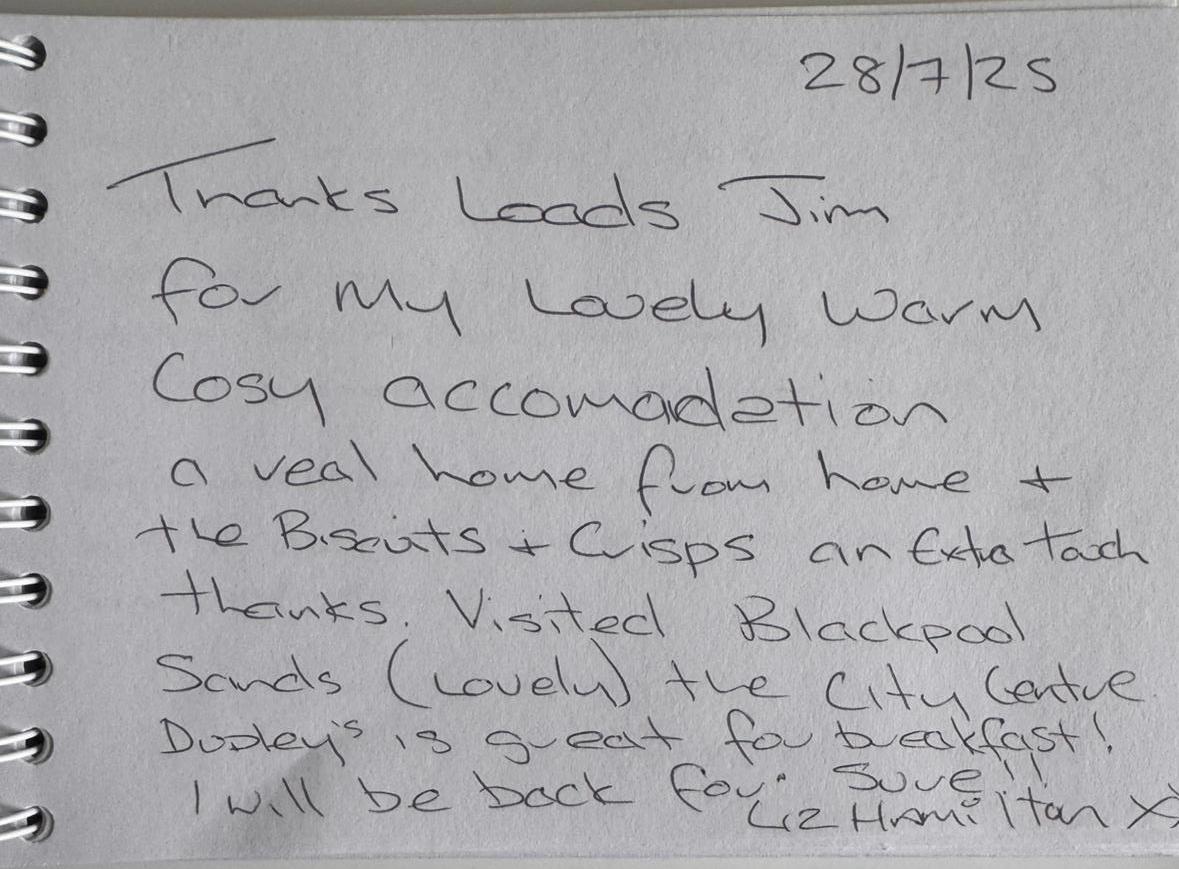 28/7/25
Thanks Loads Jim
for My Lovely Warm
Cosy accomadation
a real home from home +
the Biscuits + Crisps an Extra Touch
thanks. Visited Blackpool
Sands (Lovely) the City Centre
Dudley's is great for breakfast!
I will be back for Sure!!
Liz Hamilton x